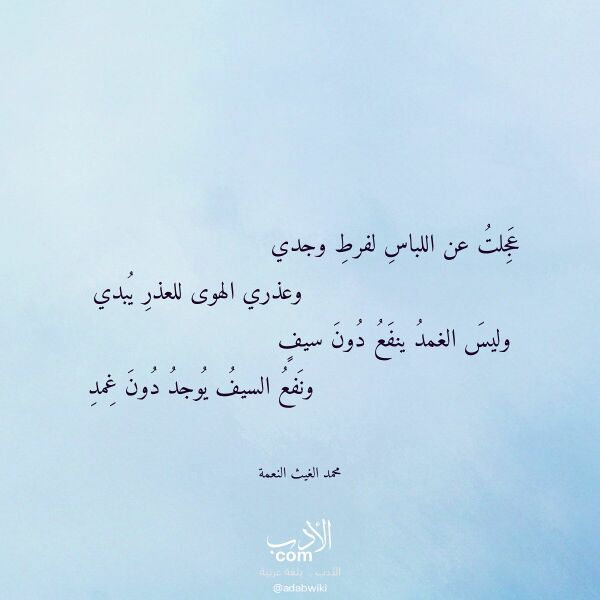 عَجِلتُ عن اللباسِ لفرطِ وجدي
وعذري الهوى للعذرِ يُبدي
وليسَ الغمدُ ينفَعُ دُونَ سيفٍ
ونَفعُ السيفُ يُوجدُ دُونَ غِمدِ
محمد الغيث النعمة
الأدب
com
الأدب .. بلغة عربية
@adabwiki